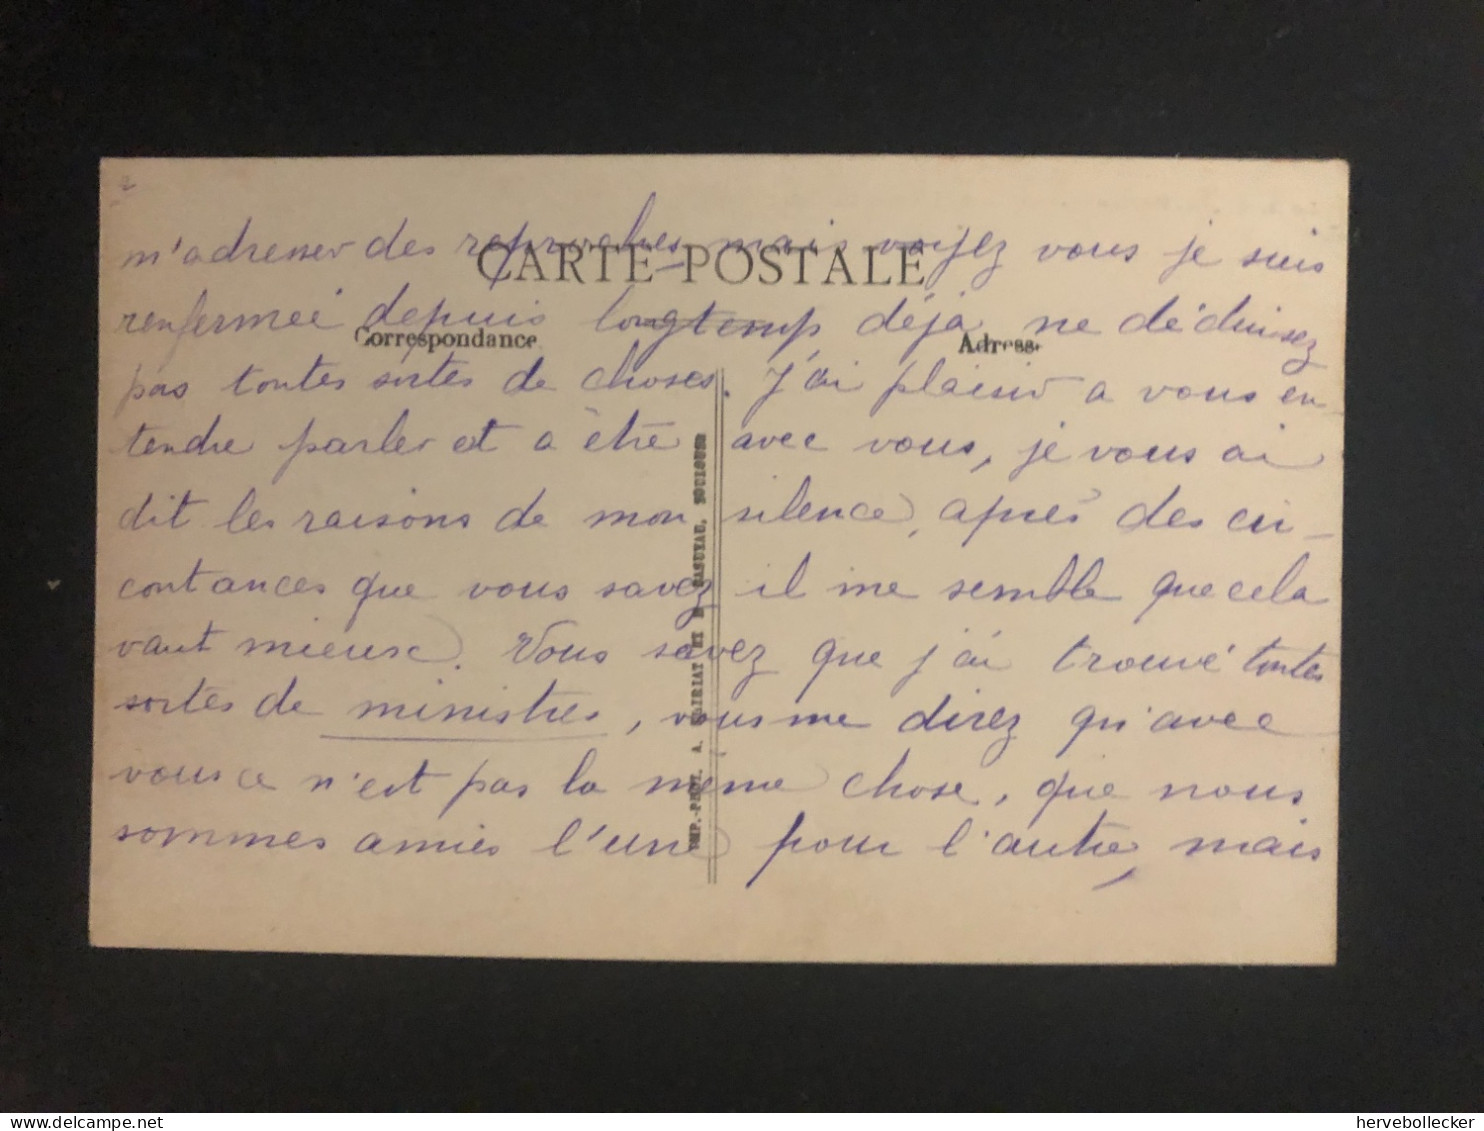 2
m'adresser des reproches, mais voyez vous je suis
CARTE POSTALE
renfermeé depuis longtemp, déja, ne déduisez
Correspondance Adresse
pas toutes sortes de choses. J'ai plaisir a vous en
tendre parler et a être avec vous, je vous ai
dit les raisons de mon silence, aprés des cir-
contances que vous savez il me semble que cela
vaut mieux. Vous savez que j'ai trouvé toutes
sortes de ministres, vous me direz qu'avec
vous ce n'est pas la même chose, que nous
sommes amies l'une pour l'autre, mais
IMP.-PHOT. A. LAIRIAT ET E. TOULOUSE
hervebollecker